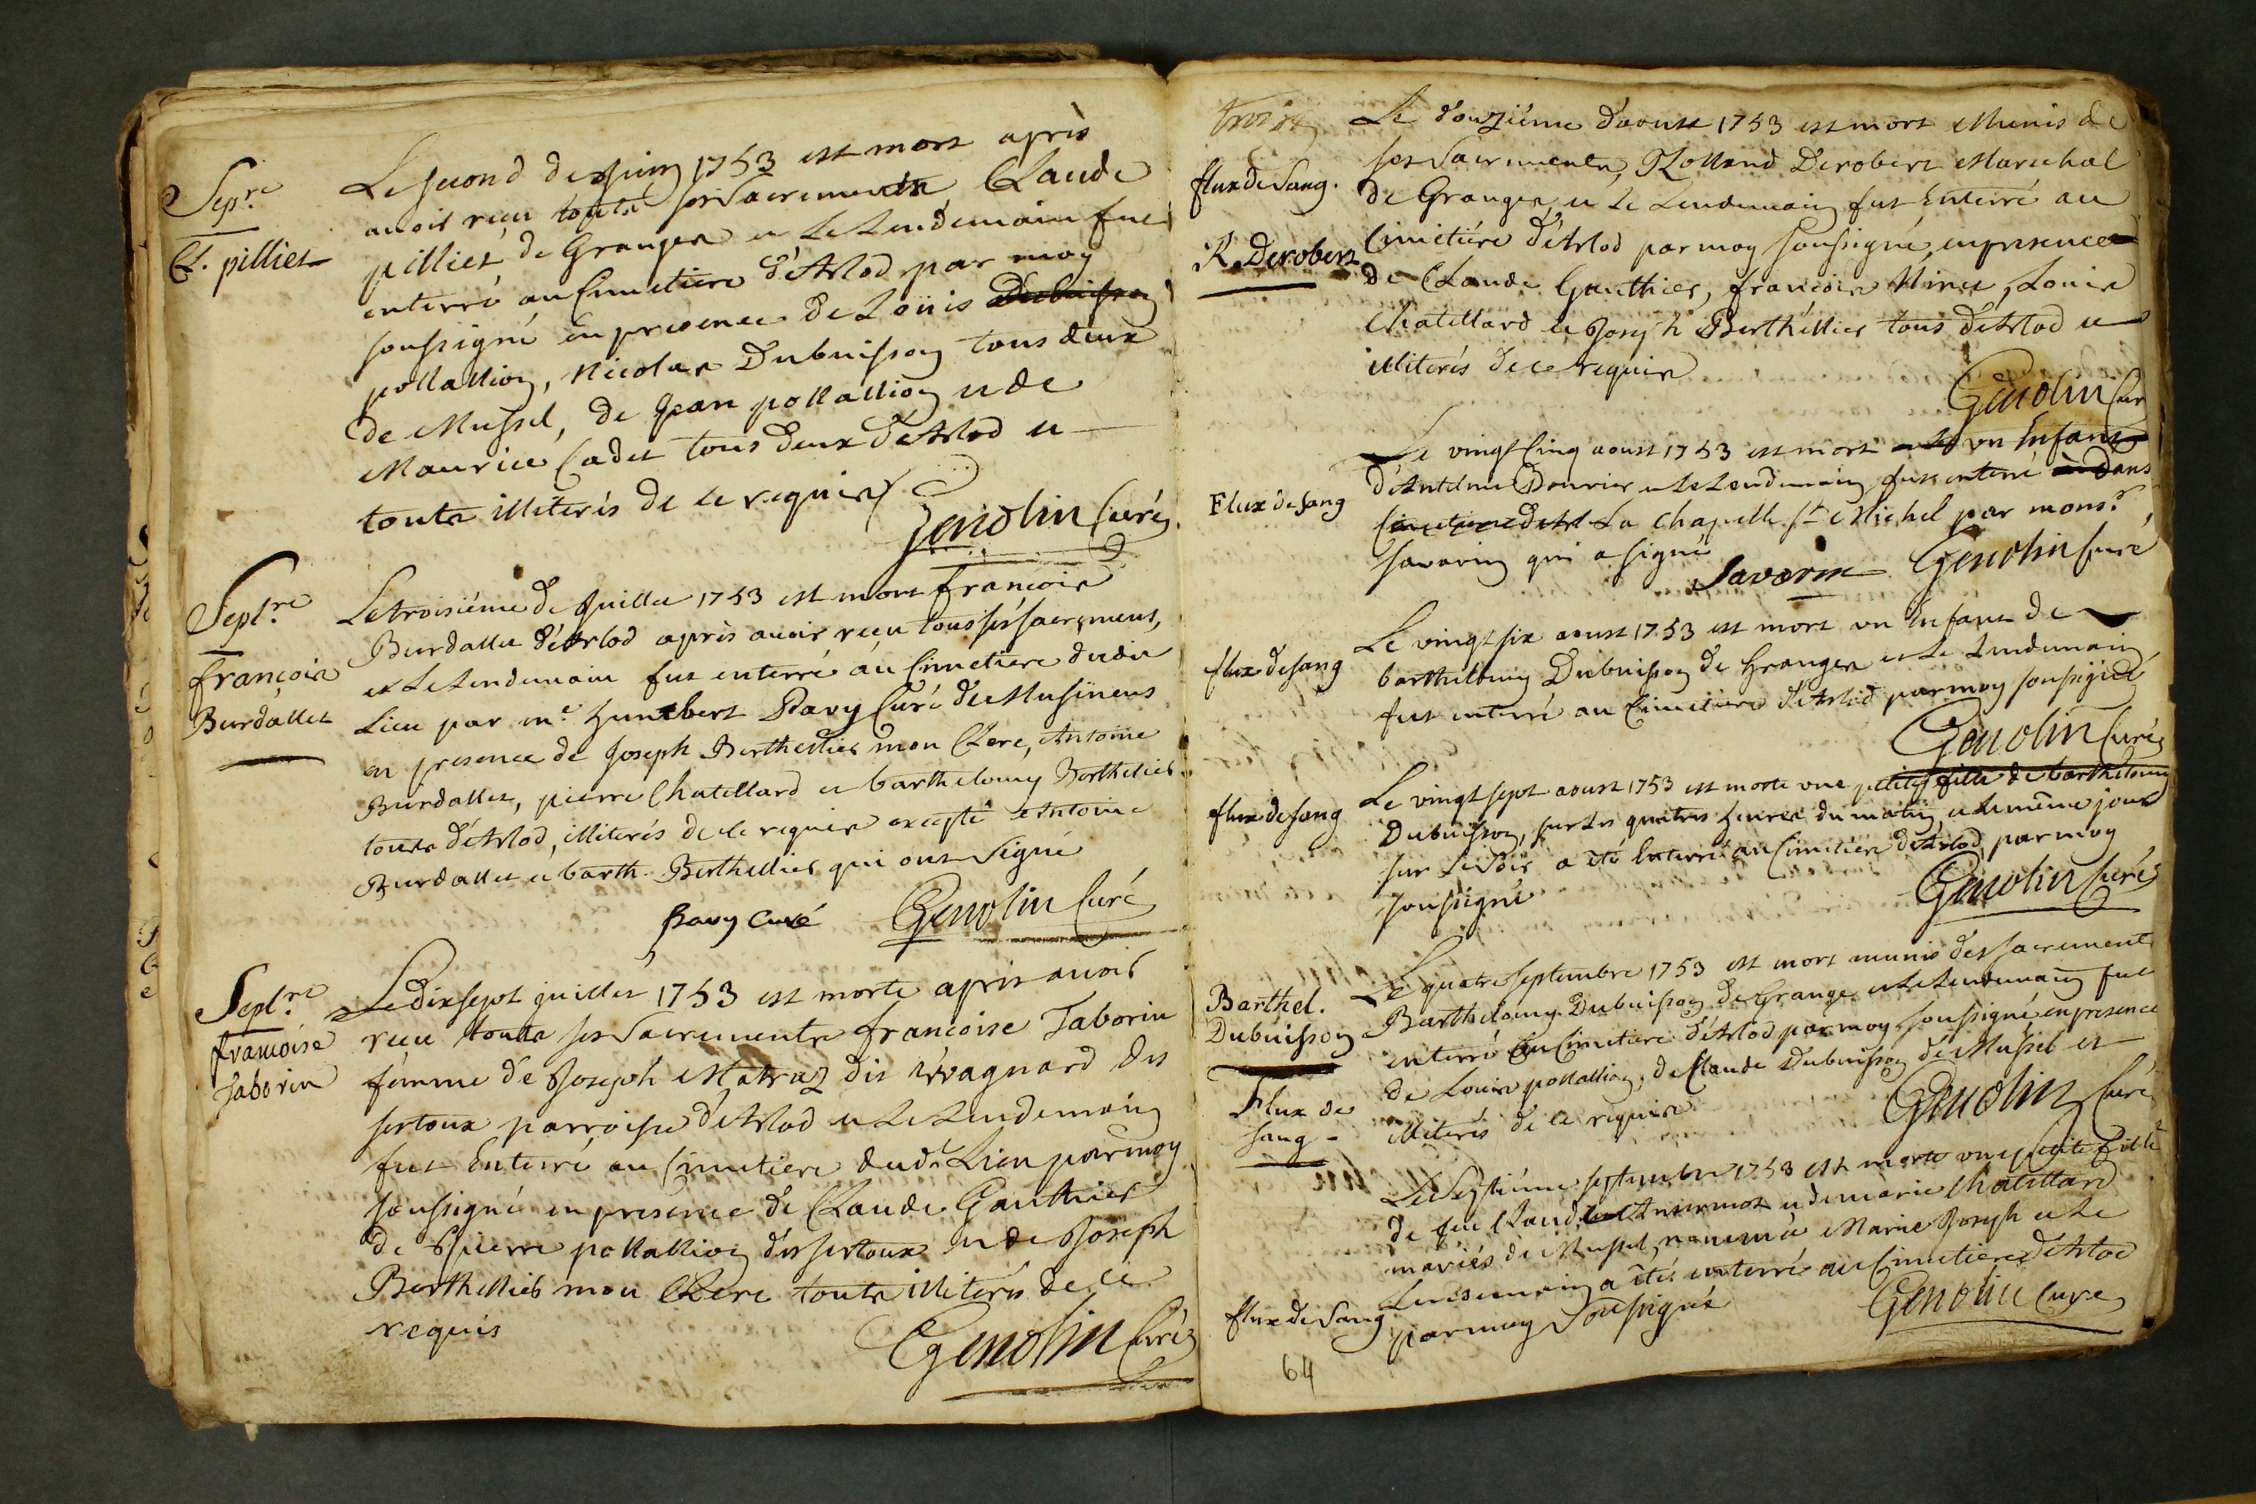 Sepre.
Cl. pilliet
Le second de Juin 1753 est mort après
avoir reçu touts ses Sacrements Claude
pilliet de Granges et Le Lendemain fut
enterré au Cimetiere d'Arlod par moy
soussigné en presence de Loüis Dubuisson
pollallion, Nicolas Dubuisson tous deux
de Mussel, de Jean pollallion et de
Maurice Cadet tous deux d'Arlod et
touts illiterés de ce requis
Genolin Curé
Septre
françois
Burdallet
Le troisiéme de Juillet 1753 est mort françois
Burdallet d'Arlod après avoir reçu tous ses sacrements,
et Le Lendemain fut enterré au Cimetiere dudit
Lieu par mr. humbert Ravy Curé de Musinens
en presence de Joseph Berthellier mon Clerc, Antoine
Burdallet, pierre Chatellard et barthelemy Berthellier
touts d'Arlod, illiterés de ce requis excepté Antoine
Burdallet et barth. Berthellier qui ont signé
Ravy Curé Genolin Curé
Septre
françoise
Taborin
Le dixsept juillet 1753 est morte après avoir
reçu touts ses Sacrements françoise Taborin
fémme de Joseph Matraz dit Révagnard des
sertoux parroisse d'Arlod et Le Lendemain
fut Enterré au Cimetiere dudt Lieu par moy
soussigné en presence de Claude Gauthier
de Pierre pollallion des sertoux et de Joseph
Berthellier mon Clerc touts illiterés de ce
requis
Genolin Curé
flux de Sang.
R. Derobert
Le douziéme d'aoust 1753 est mort Munis de
ses Sacrements, Rolland Derobert Marechal
de Granges et Le Lendemain fut Enterré au
Cimetiére d'Arlod par moy soussigné, en presence
de Claude Gauthier, françois Ninet, Louis
Chatellard et Joseph Berthellier tous d'Arlod et
illiterés de ce requis
Genolin Cur
Flux de sang
Le vingt Cinq aoust 1753 est mort un Enfant
d'Antelme Bouvier et Le Lendemain fut enterré à dans
Cimetiere d'Arl La Chapelle St Michel par monsr.
Savarin qui a signé
Savarin Genolin Curé
flux de sang
Le vingt six aoust 1753 est mort un Enfant de
barthelemy Dubuisson de Granges et Le Lendemain
fut enterré au Cimetiere d'Arlod par moy soussigné
Genolin Curé
flux de sang
Le vingt sept aoust 1753 est morte une petite fille de barthelemy
Dubuisson, sur Les quatres heures du matin, et Le même jour
sur Le Soir a été Enterré au Cimetiere d'Arlod, par moy
soussigné
Genolin Curé
Barthel.
Dubuisson
Flux de
sang
Le quatre Septembre 1753 est mort munis des sacrements
Barthelemy Dubuisson de Grange et Le Lendemain fut
enterré au Cimetiere d'Arlod par moy soussigné en presence
de Louis pollallion, de Claude Dubuisson de Mussel et
illiterés de ce requis
Genolin Curé
flux de Sang
Le Septiéme septembre 1753 est morte une petite fille
de feu Claude et de marie Chatellard
mariés de Mussel, nommée Marie Joseph et Le
Lendemain a étés enterré au Cimetiere d'Arlod
par moy Soussigné
Genolin Curé
64